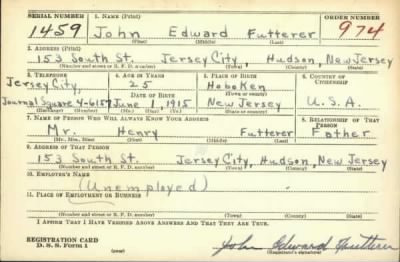 SERIAL NUMBER 1. NAME (Print) ORDER NUMBER
1459 John Edward Futterer 974
(First) (Middle) (Last)
2. ADDRESS (Print)
153 South St. Jersey City, Hudson, New Jersey
(Number and street or R. F. D. number) (Town) (County) (State)
3. TELEPHONE 4. AGE IN YEARS 5. PLACE OF BIRTH 6. COUNTRY OF CITIZENSHIP
Jersey City, 25 Hoboken
DATE OF BIRTH
Journal Square 4-6157 June 11 1915 New Jersey U.S.A.
7. NAME OF PERSON WHO WILL ALWAYS KNOW YOUR ADDRESS 8. RELATIONSHIP OF THAT PERSON
Mr. Henry Futterer Father
(Mr., Mrs., Miss) (First) (Middle) (Last)
9. ADDRESS OF THAT PERSON
153 South St. Jersey City, Hudson, New Jersey
(Number and street or R. F. D. number) (Town) (County) (State)
10. EMPLOYER'S NAME
(Unemployed)
11. PLACE OF EMPLOYMENT OR BUSINESS
(Number and street or R. F. D. number) (Town) (County) (State)
I AFFIRM THAT I HAVE VERIFIED ABOVE ANSWERS AND THAT THEY ARE TRUE.
REGISTRATION CARD
D. S. S. Form 1
John Edward Futterer
(Registrant's signature)